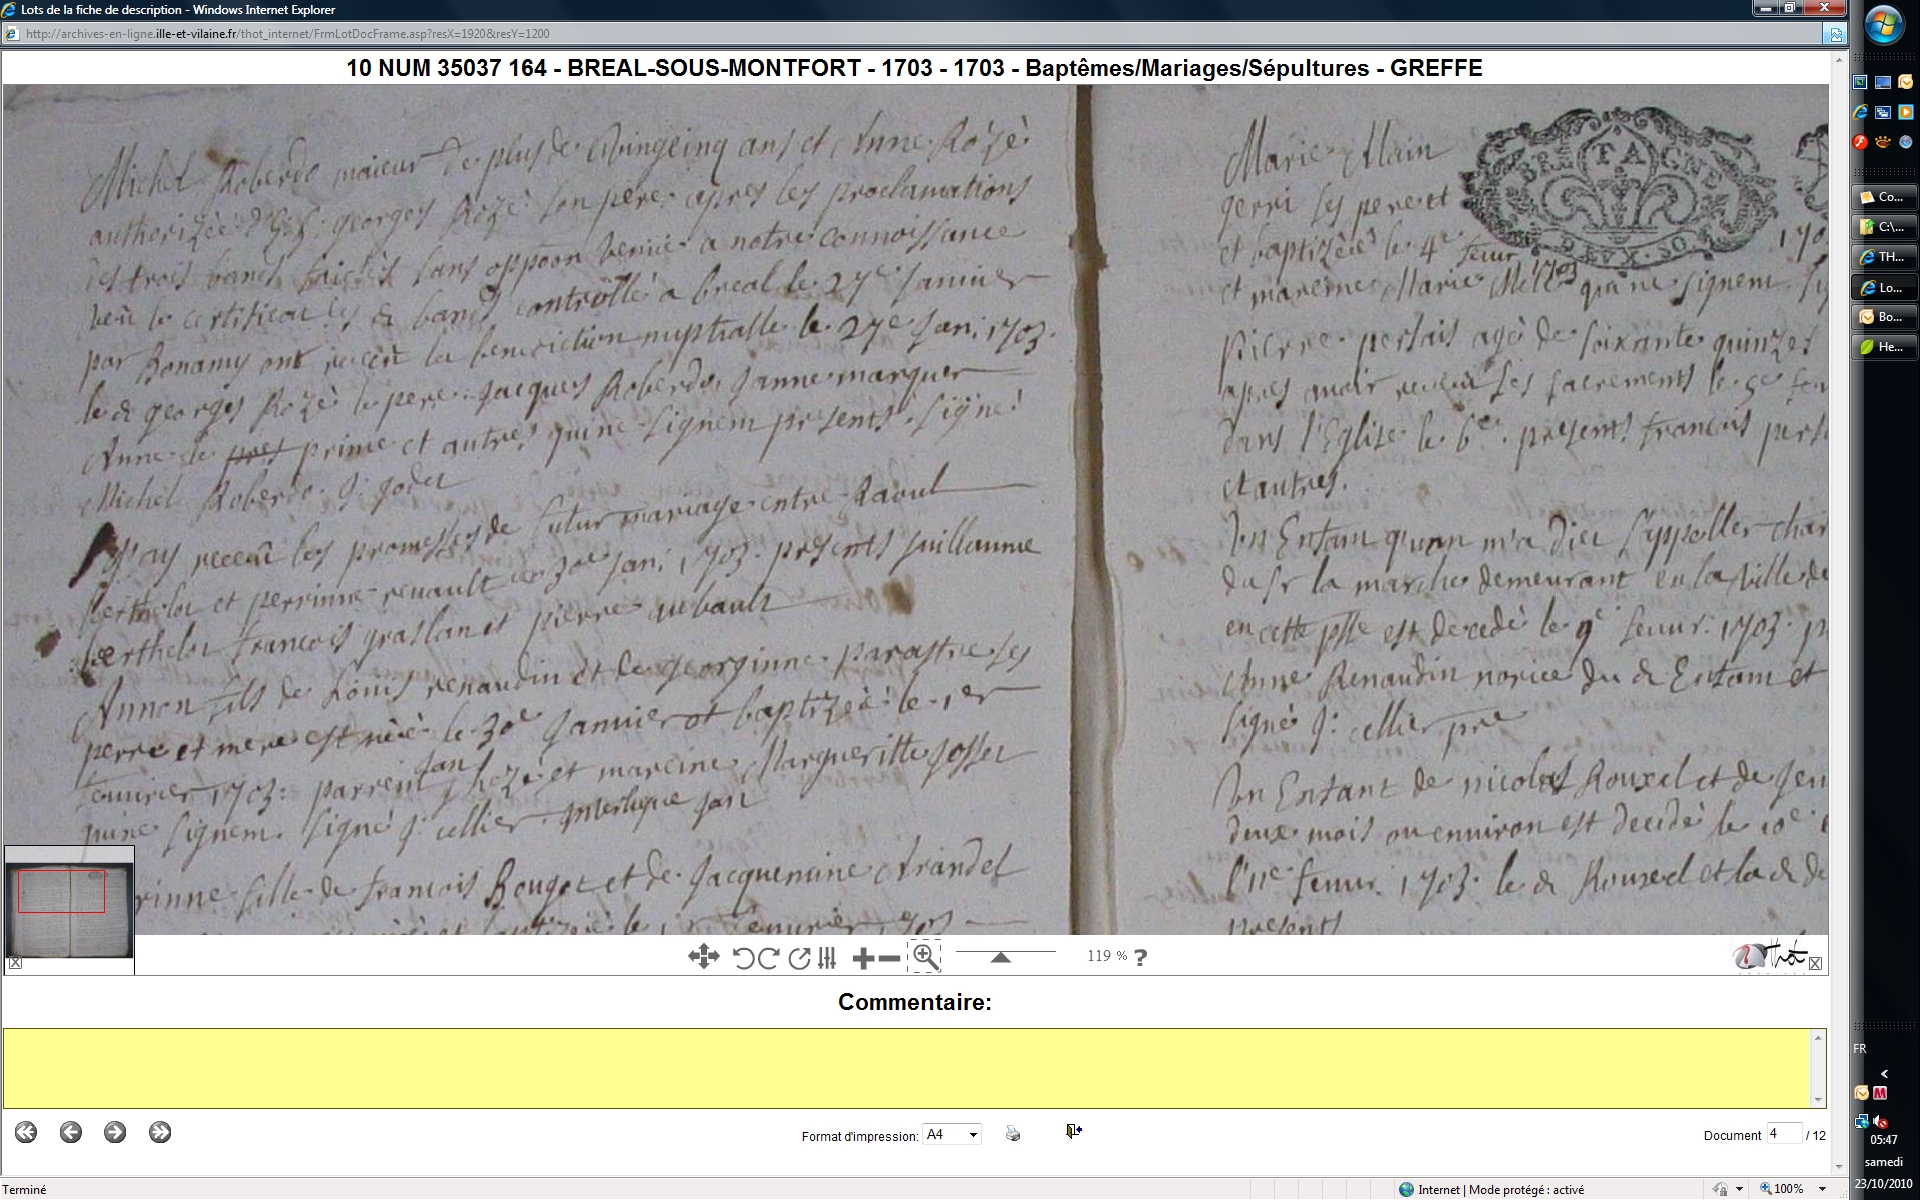 Lots de la fiche de description - Windows Internet Explorer
http://archives-en-ligne.ille-et-vilaine.fr/thot_internet/FrmLotDocFrame.asp?resX=1920&resY=1200
10 NUM 35037 164 - BREAL-SOUS-MONTFORT - 1703 - 1703 - Baptêmes/Mariages/Sépultures - GREFFE
Michel Roberdo maieur de plus de vingt cinq ans et Anne Rozé
authorizée georges Rozé son pere apres les proclamations
des trois bancs sans oppoon venüe a notre connoissance
veu le certificat bancs controllé a breal le 27e Janvier
par Bonamy ont receu la benediction nuptialle le 27e Jan: 1703.
le d georges Rozé le pere Jacques Roberdo, Janne marquer
Anne le prime et autres qui ne signent presents. Signé:
Michel Roberdo. J: Godet
J'ay receu les promesses de futur mariage entre Raoul
berthelot et perrinne renault 30e Jan: 1703. presents Guillaume
berthelot francois graslan et pierre
Annon fils de Louis renaudin et de Georginne parastre ses
perre et mere est néé le 30e Janvier et baptizéé le 1er
feuvrier 1703: parrein Jan hozé et mareine Margueritte Josset
qui ne signent. Signé J: cellier interligne Jan
rinne fille de francois Bouget et de Jacquemine Arandel
le 1r feuvrier 1703
Marie Alain
ses pere et
et baptizéé le 4e feuvr
1703
et mareine Marie qui ne signent
BRETAGNE
DEVX.SO
170
pierre persais agé de soixante quinze
apres avoir receu ses sacrements le 5e feu
dans l'Eglise le 6e. presents francois pers
et autres.
Un Enfant qu'on m'a dit s'appeller char
du Sr la marche demeurant en la ville de
en cette psse est decedé le 9e feuvr. 1703. p
Anne Renaudin norice du d Enfant et
signé J: cellier pre
Un Enfant de nicolas Rouxel et de Jen
deux mois ou environ est decedé le 10e
l'11e feuvr. 1703. le d Rouxel et la d de
presents
119 % ?
thot
Commentaire:
Format d'impression: A4
Document 4 / 12
Terminé
Internet | Mode protégé : activé
100%
Co...
C:\...
TH...
Lo...
Bo...
He...
FR
05:47
samedi
23/10/2010